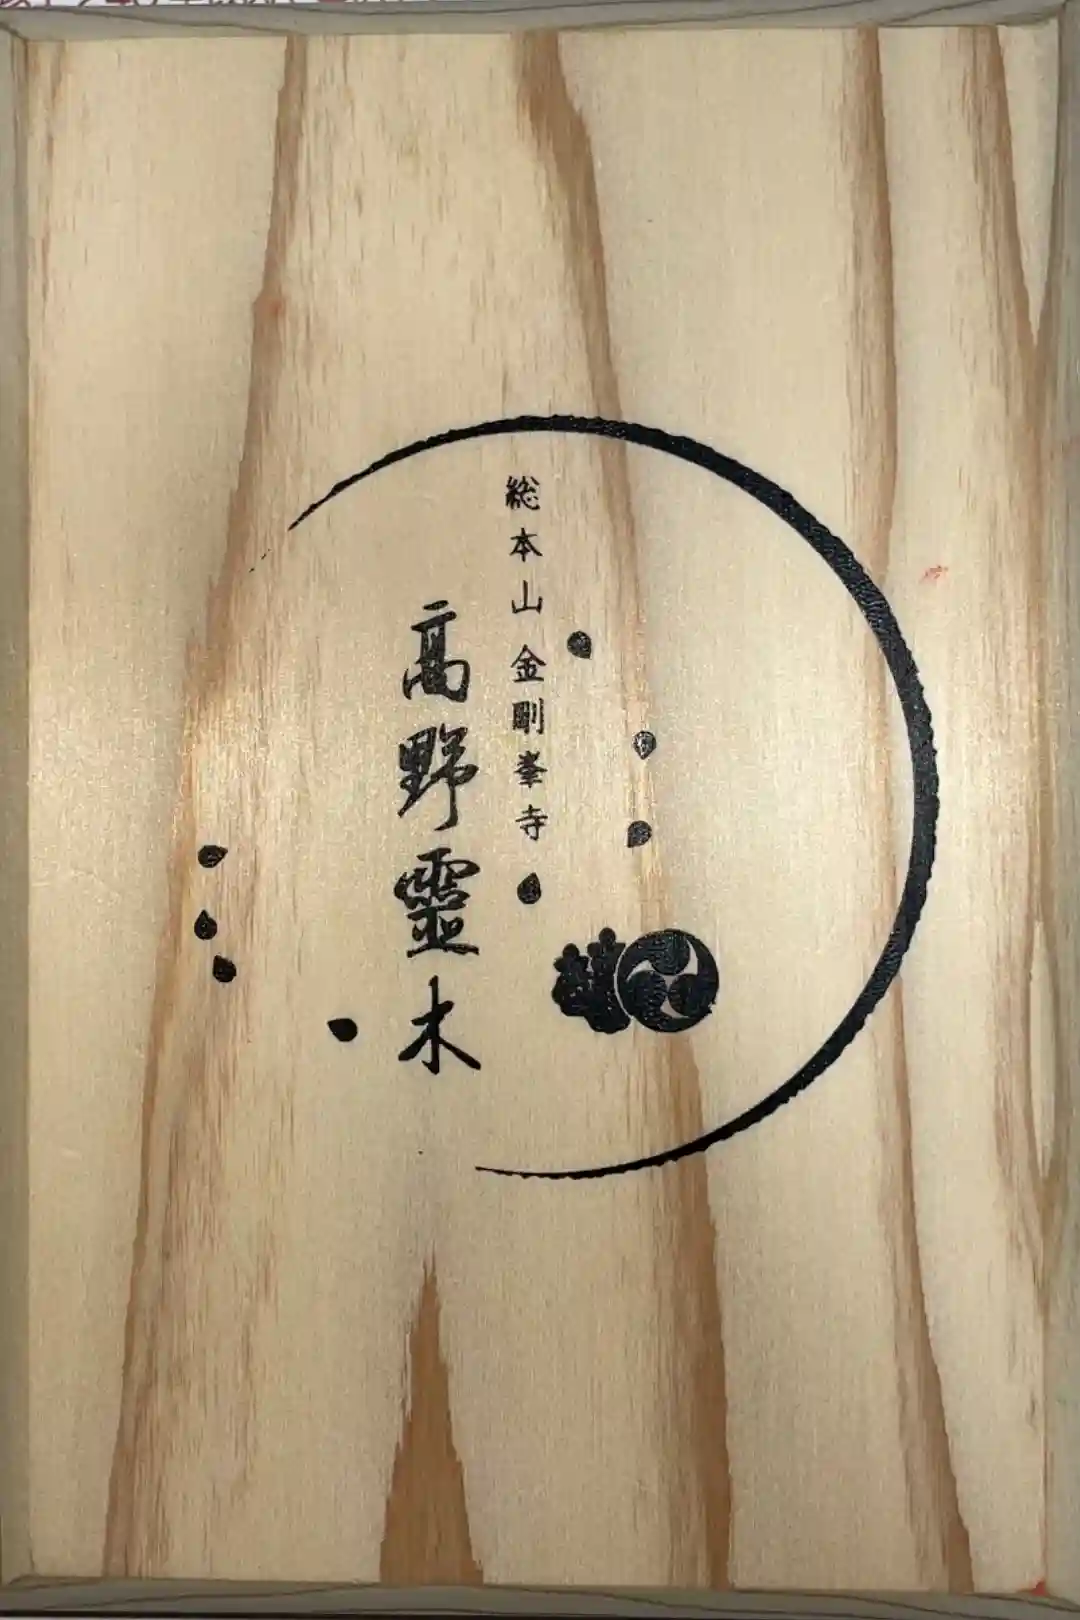 総本山金剛峯寺
高野霊木